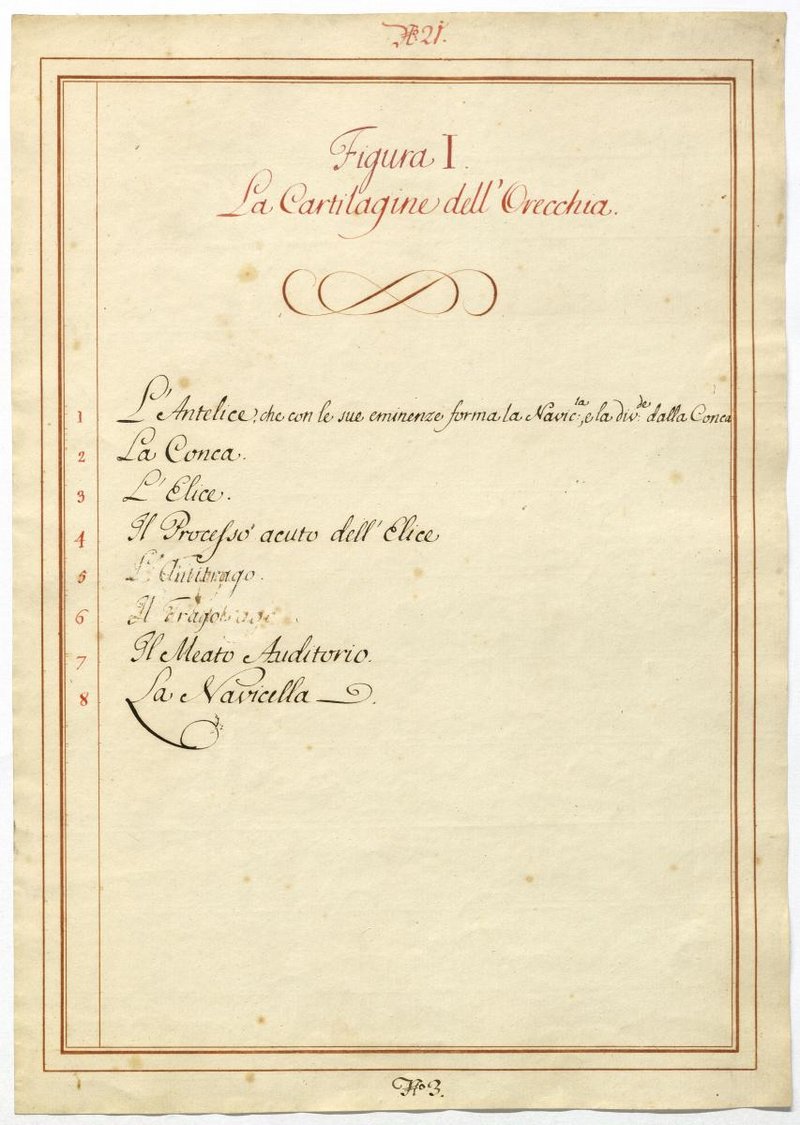 No. 21.
Figura I.
La Cartilagine dell' Orecchia.
1 L'Antelice, che con le sue eminenze forma la Navic:la, e la div:de dalla Conca
2 La Conca.
3 L'Elice.
4 Il Processo acuto dell' Elice
5 L'Antitrago.
6 Il Trago
7 Il Meato Auditorio.
8 La Navicella.
No. 3.